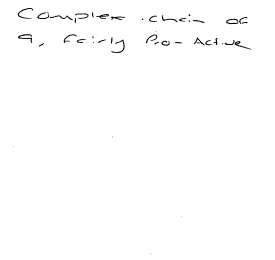 Complex chain of
9, Fairly Pro-Active